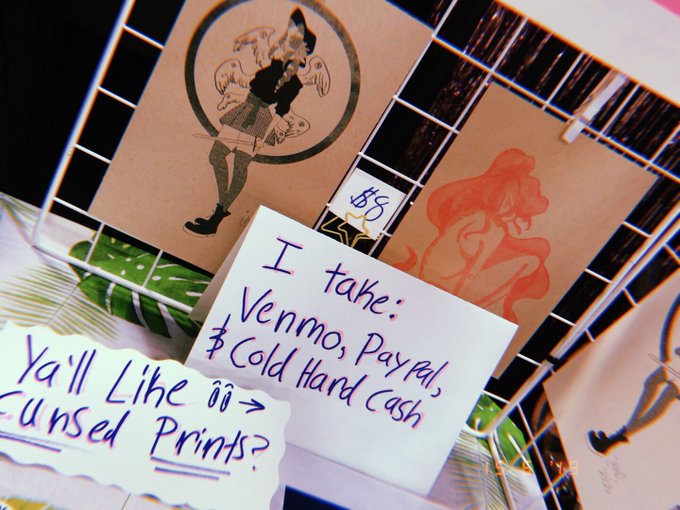 $8
I take:
Venmo, PayPal,
& Cold Hard Cash
Ya'll Like →
Cursed Prints?